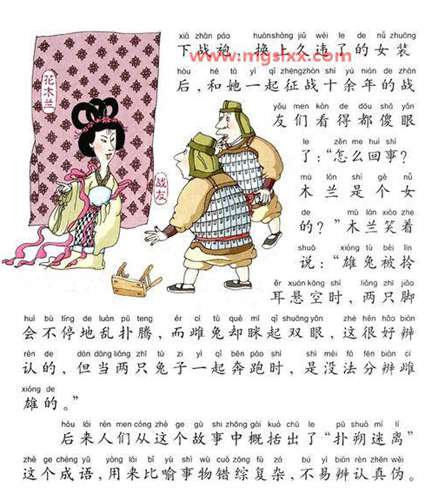 www.mgslxx.com
花木兰
战友
xià zhàn páo huànshàng jiǔ wéi le de nǚ zhuāng
下战袍，换上久违了的女装
hòu hé tā yì qǐ zhēngzhàn shí yú nián de zhàn
后，和她一起征战十余年的战
yǒu men kàn de dōu shǎ yǎn
友们看得都傻眼
le zěn me huí shì
了：“怎么回事？
mù lán shì gè nǚ
木兰是个女
de mù lán xiào zhe
的？”木兰笑着
shuō xióng tù bèi līn
说：“雄兔被拎
ěr xuán kōng shí liǎng zhī jiǎo
耳悬空时，两只脚
huì bù tíng de luàn pū teng ér cí tù què mī qǐ shuāngyǎn zhè hěn hǎo biàn
会不停地乱扑腾，而雌兔却眯起双眼，这很好辨
rèn de dàn dāng liǎng zhī tù zi yì qǐ bēn pǎo shí shì méi fǎ fēn biàn cí
认的，但当两只兔子一起奔跑时，是没法分辨雌
xióng de
雄的。”
hòu lái rén men cóng zhè ge gù shi zhōng gài kuò chū le pū shuò mí lí
后来人们从这个故事中概括出了“扑朔迷离”
zhè ge chéng yǔ yòng lái bǐ yù shì wù cuò zōng fù zá bù yì biàn rèn zhēn wěi
这个成语，用来比喻事物错综复杂，不易辨认真伪。